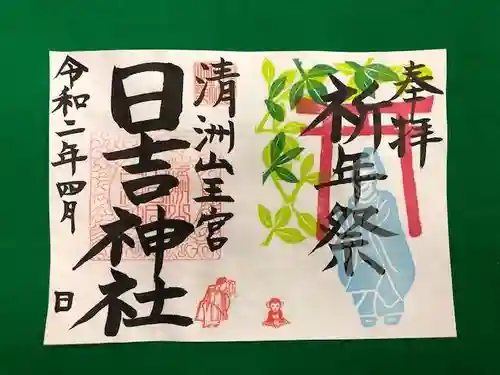 奉拝
祈年祭
清洲山王宮
日吉神社
令和二年四月 日